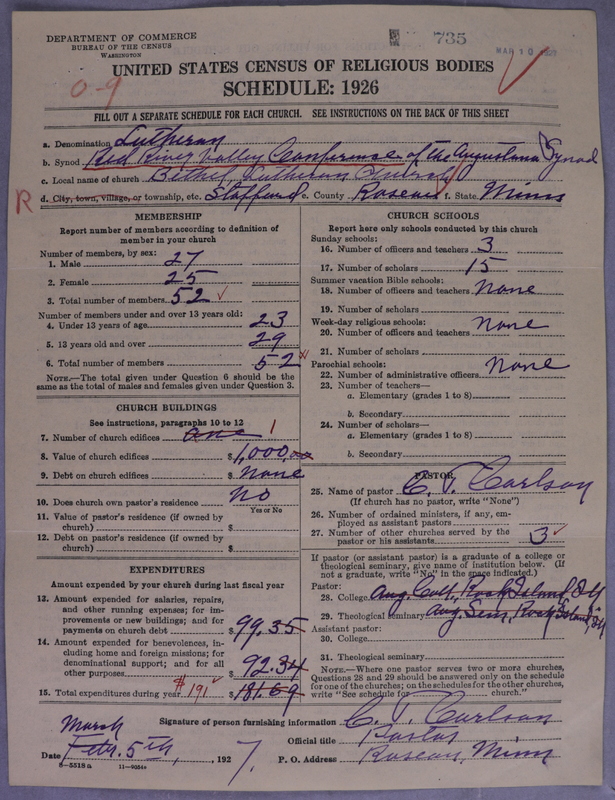 DEPARTMENT OF COMMERCE
BUREAU OF THE CENSUS
WASHINGTON
735
MAR 10 1927
0-9
UNITED STATES CENSUS OF RELIGIOUS BODIES
SCHEDULE: 1926
FILL OUT A SEPARATE SCHEDULE FOR EACH CHURCH. SEE INSTRUCTIONS ON THE BACK OF THIS SHEET
a. Denomination Lutheran
b. Synod Red River Valley Conference of the Augustana Synod
c. Local name of church Bethel Lutheran Church
R
d. City, town, village, or township, etc. Stafford e. County Roseau f. State Minn
MEMBERSHIP
Report number of members according to definition of
member in your church
Number of members, by sex:
1. Male 27
2. Female 25
3. Total number of members 52 ✓
Number of members under and over 13 years old:
4. Under 13 years of age 23
5. 13 years old and over 29
6. Total number of members 52
NOTE.—The total given under Question 6 should be the
same as the total of males and females given under Question 3.
CHURCH BUILDINGS
See instructions, paragraphs 10 to 12
7. Number of church edifices one 1
8. Value of church edifices $1,000.00
9. Debt on church edifices $ none
10. Does church own pastor's residence no
Yes or No
11. Value of pastor's residence (if owned by
church) $
12. Debt on pastor's residence (if owned by
church) $
EXPENDITURES
Amount expended by your church during last fiscal year
13. Amount expended for salaries, repairs,
and other running expenses; for im-
provements or new buildings; and for
payments on church debt $99.35
14. Amount expended for benevolences, in-
cluding home and foreign missions; for
denominational support; and for all
other purposes $92.34
15. Total expenditures during year $191 ✓ $181.69
CHURCH SCHOOLS
Report here only schools conducted by this church
Sunday schools:
16. Number of officers and teachers 3
17. Number of scholars 15
Summer vacation Bible schools:
18. Number of officers and teachers none
19. Number of scholars
Week-day religious schools:
20. Number of officers and teachers none
21. Number of scholars
Parochial schools:
22. Number of administrative officers none
23. Number of teachers—
a. Elementary (grades 1 to 8)
b. Secondary
24. Number of scholars—
a. Elementary (grades 1 to 8)
b. Secondary
PASTOR
25. Name of pastor C. T. Carlson
(If church has no pastor, write "None")
26. Number of ordained ministers, if any, em-
ployed as assistant pastors
27. Number of other churches served by the
pastor or his assistants 3 ✓
If pastor (or assistant pastor) is a graduate of a college or
theological seminary, give name of institution below. (If
not a graduate, write "No" in the space indicated.)
Pastor:
28. College Aug. Coll, Rock Island, Ill
29. Theological seminary Aug. Sem, Rock Island, Ill
Assistant pastor:
30. College
31. Theological seminary
NOTE.—Where one pastor serves two or more churches,
Questions 28 and 29 should be answered only on the schedule
for one of the churches; on the schedules for the other churches,
write "See schedule for church."
Signature of person furnishing information C. T. Carlson
Official title Pastor
March
Date Feb. 5th, 1927. P. O. Address Roseau, Minn
8-5518a 11-9054